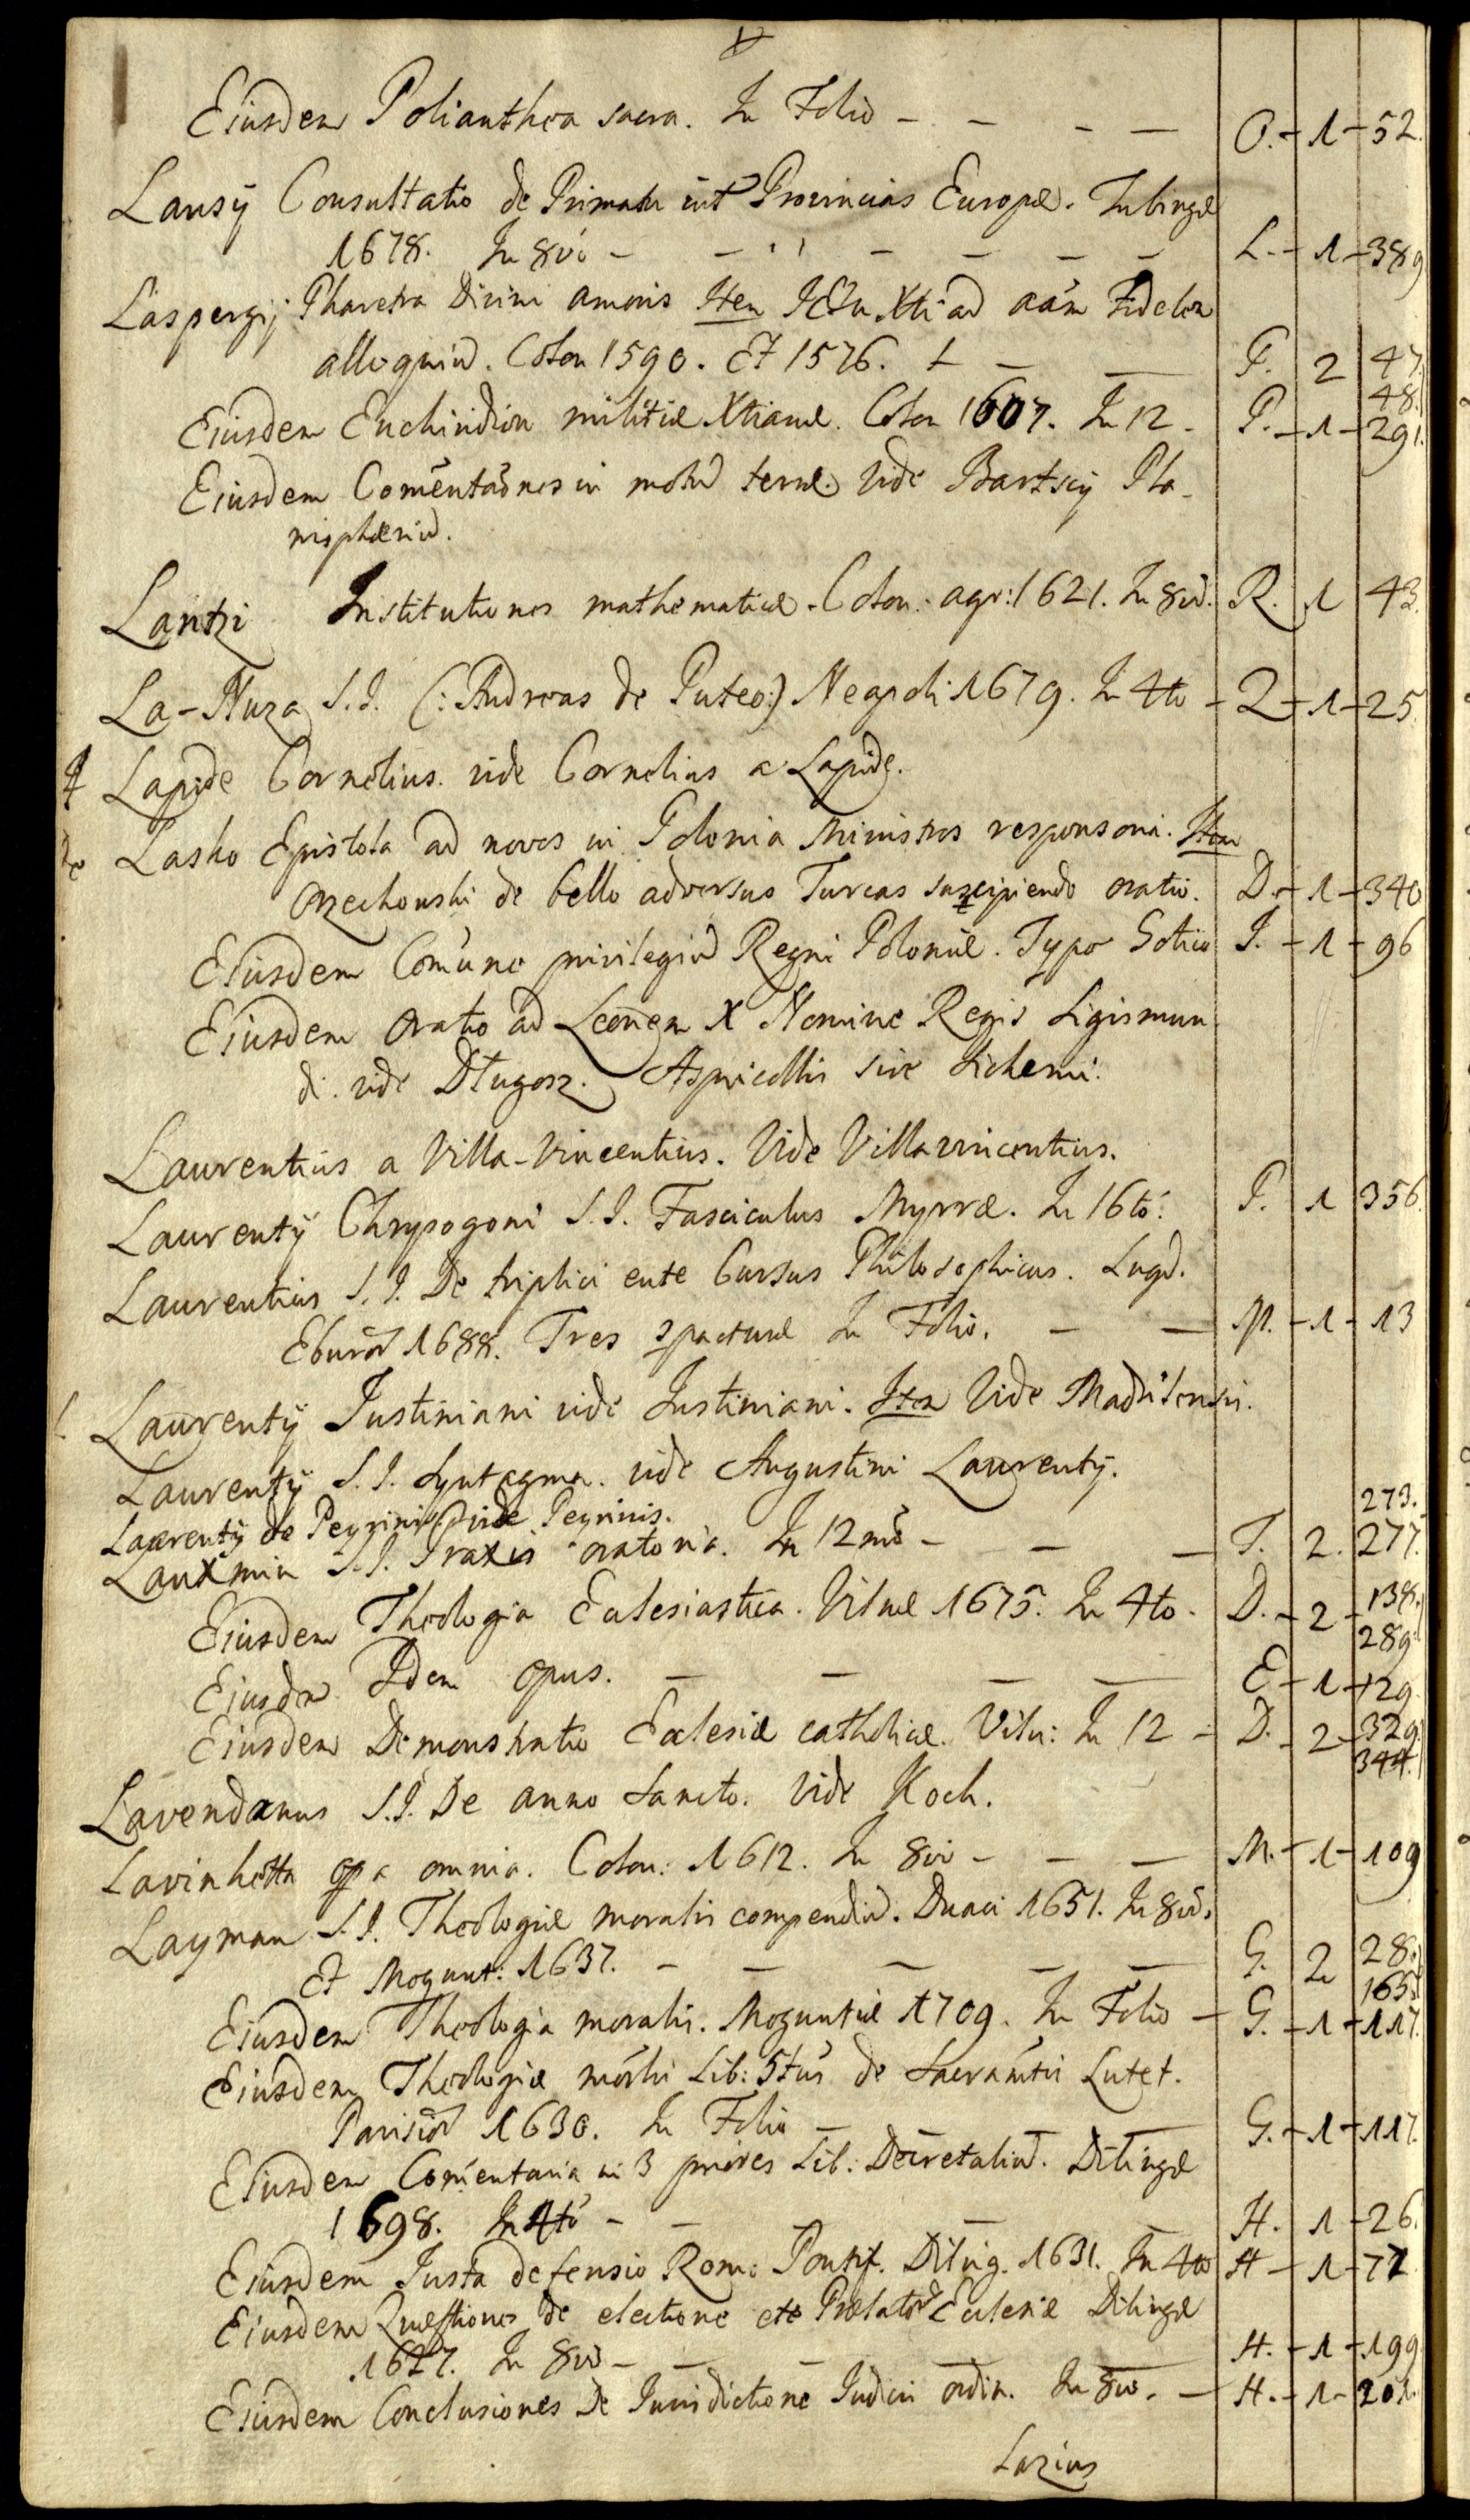 Eiusdem Polianthea sacra. In Folio - - - - O. - 1 - 52.
Lansÿ Consultatio de Primatu int Provincias Europæ. Tubingæ
1678. In 8vo - - - - - - L. - 1 - 389
Laspergij Pharetra Divini amoris Item IESu Xti ad aãm Fidelem
alloquiũ. Colon 1590. Et 1576. - - P. 2 47.
48.
Eiusdem Enchiridion militiæ Xtianæ. Colon 1607. In 12 - P. - 1 - 291.
Eiusdem Comentaõnes in motũ terræ. Vide Bartscÿ Pla-
nisphæriũ.
Lantzi Institutiones mathematicæ. Colon: agr: 1621. In 8vo. R. 1 43.
La-Nuza S.I. (: Andreas de Puteo:) Neapoli 1679. In 4to - Q - 1 - 25.
Lapide Cornelius. vide Cornelius a Lapide.
Lasko Epistola ad novos in Polonia Ministros responsoria. Item
Orzechouski de bello adversus Turcas suscipiendo oratio. D. - 1 - 340
Eiusdem Comune privilegiũ Regni Poloniæ. Typo Gotico I. - 1 - 96
Eiusdem Oratio ad Leonem X Nomine Regis Sigismun
di. vide Długosz. Aspricollis sive Lichemi.
Laurentius a Villa-Vincentius. Vide Villavincentius.
Laurentÿ Chrysogoni S.I. Fasciculus Myrræ. In 16to. P. 1 356.
Laurentius S.I. De triplici ente Cursus Philosophicus. Lugd.
Eburon 1688. Tres compacturæ In Folio. - - M. - 1 - 13
Laurentÿ Iustiniani vide Iustiniani. Item Vide Madritensis.
Laurentÿ S.I. Syntagma. vide Augustini Laurentÿ.
Laurentÿ de Peyrinis vide Peyrinis.
273.
Lauxmin S.I. Praxis oratoria. In 12mo - - - T. 2. 277.
Eiusdem Theologia Ecclesiastica. Vilnæ 1675. In 4to. D. - 2 - 138.
289.
Eiusdem Idem opus. - - - - E - 1 - 129.
Eiusdem Demonstratio Ecclesiæ catholicæ. Viln: In 12 - D. - 2 - 329.
344.
Lavendanus S.I. De anno Sancto. Vide Koch.
Lavinhetta opa omnia. Colon: 1612. In 8vo - - - M. - 1 - 109
Layman S.I. Theologiæ moralis compendiũ. Duaci 1651. In 8vo.
Et Mogunt: 1637. - - - - - G. 2 28.
165.
Eiusdem Theologia moralis. Moguntiæ 1709. In Folio - G. - 1 - 117.
Eiusdem Theologiæ morlis Lib: 5tus de Sacramtis Lutet.
Parisior 1630. In Folio - - - G. - 1 - 117.
Eiusdem Comentaria in 3 priores Lib: Decretaliũ. Dilingæ
1698. In 4to - - - - - H. 1 - 26.
Eiusdem Iusta defensio Rom: Pontif. Diling. 1631. In 4to H - 1 - 72.
Eiusdem Quæstiones de electione etc Prælator Ecclesiæ Dilingæ
1627. In 8vo - - - - H. - 1 - 199
Eiusdem Conclusiones De Iurisdictione Iudicis ordin. In 8vo. - H. - 1 - 201.
Lazius